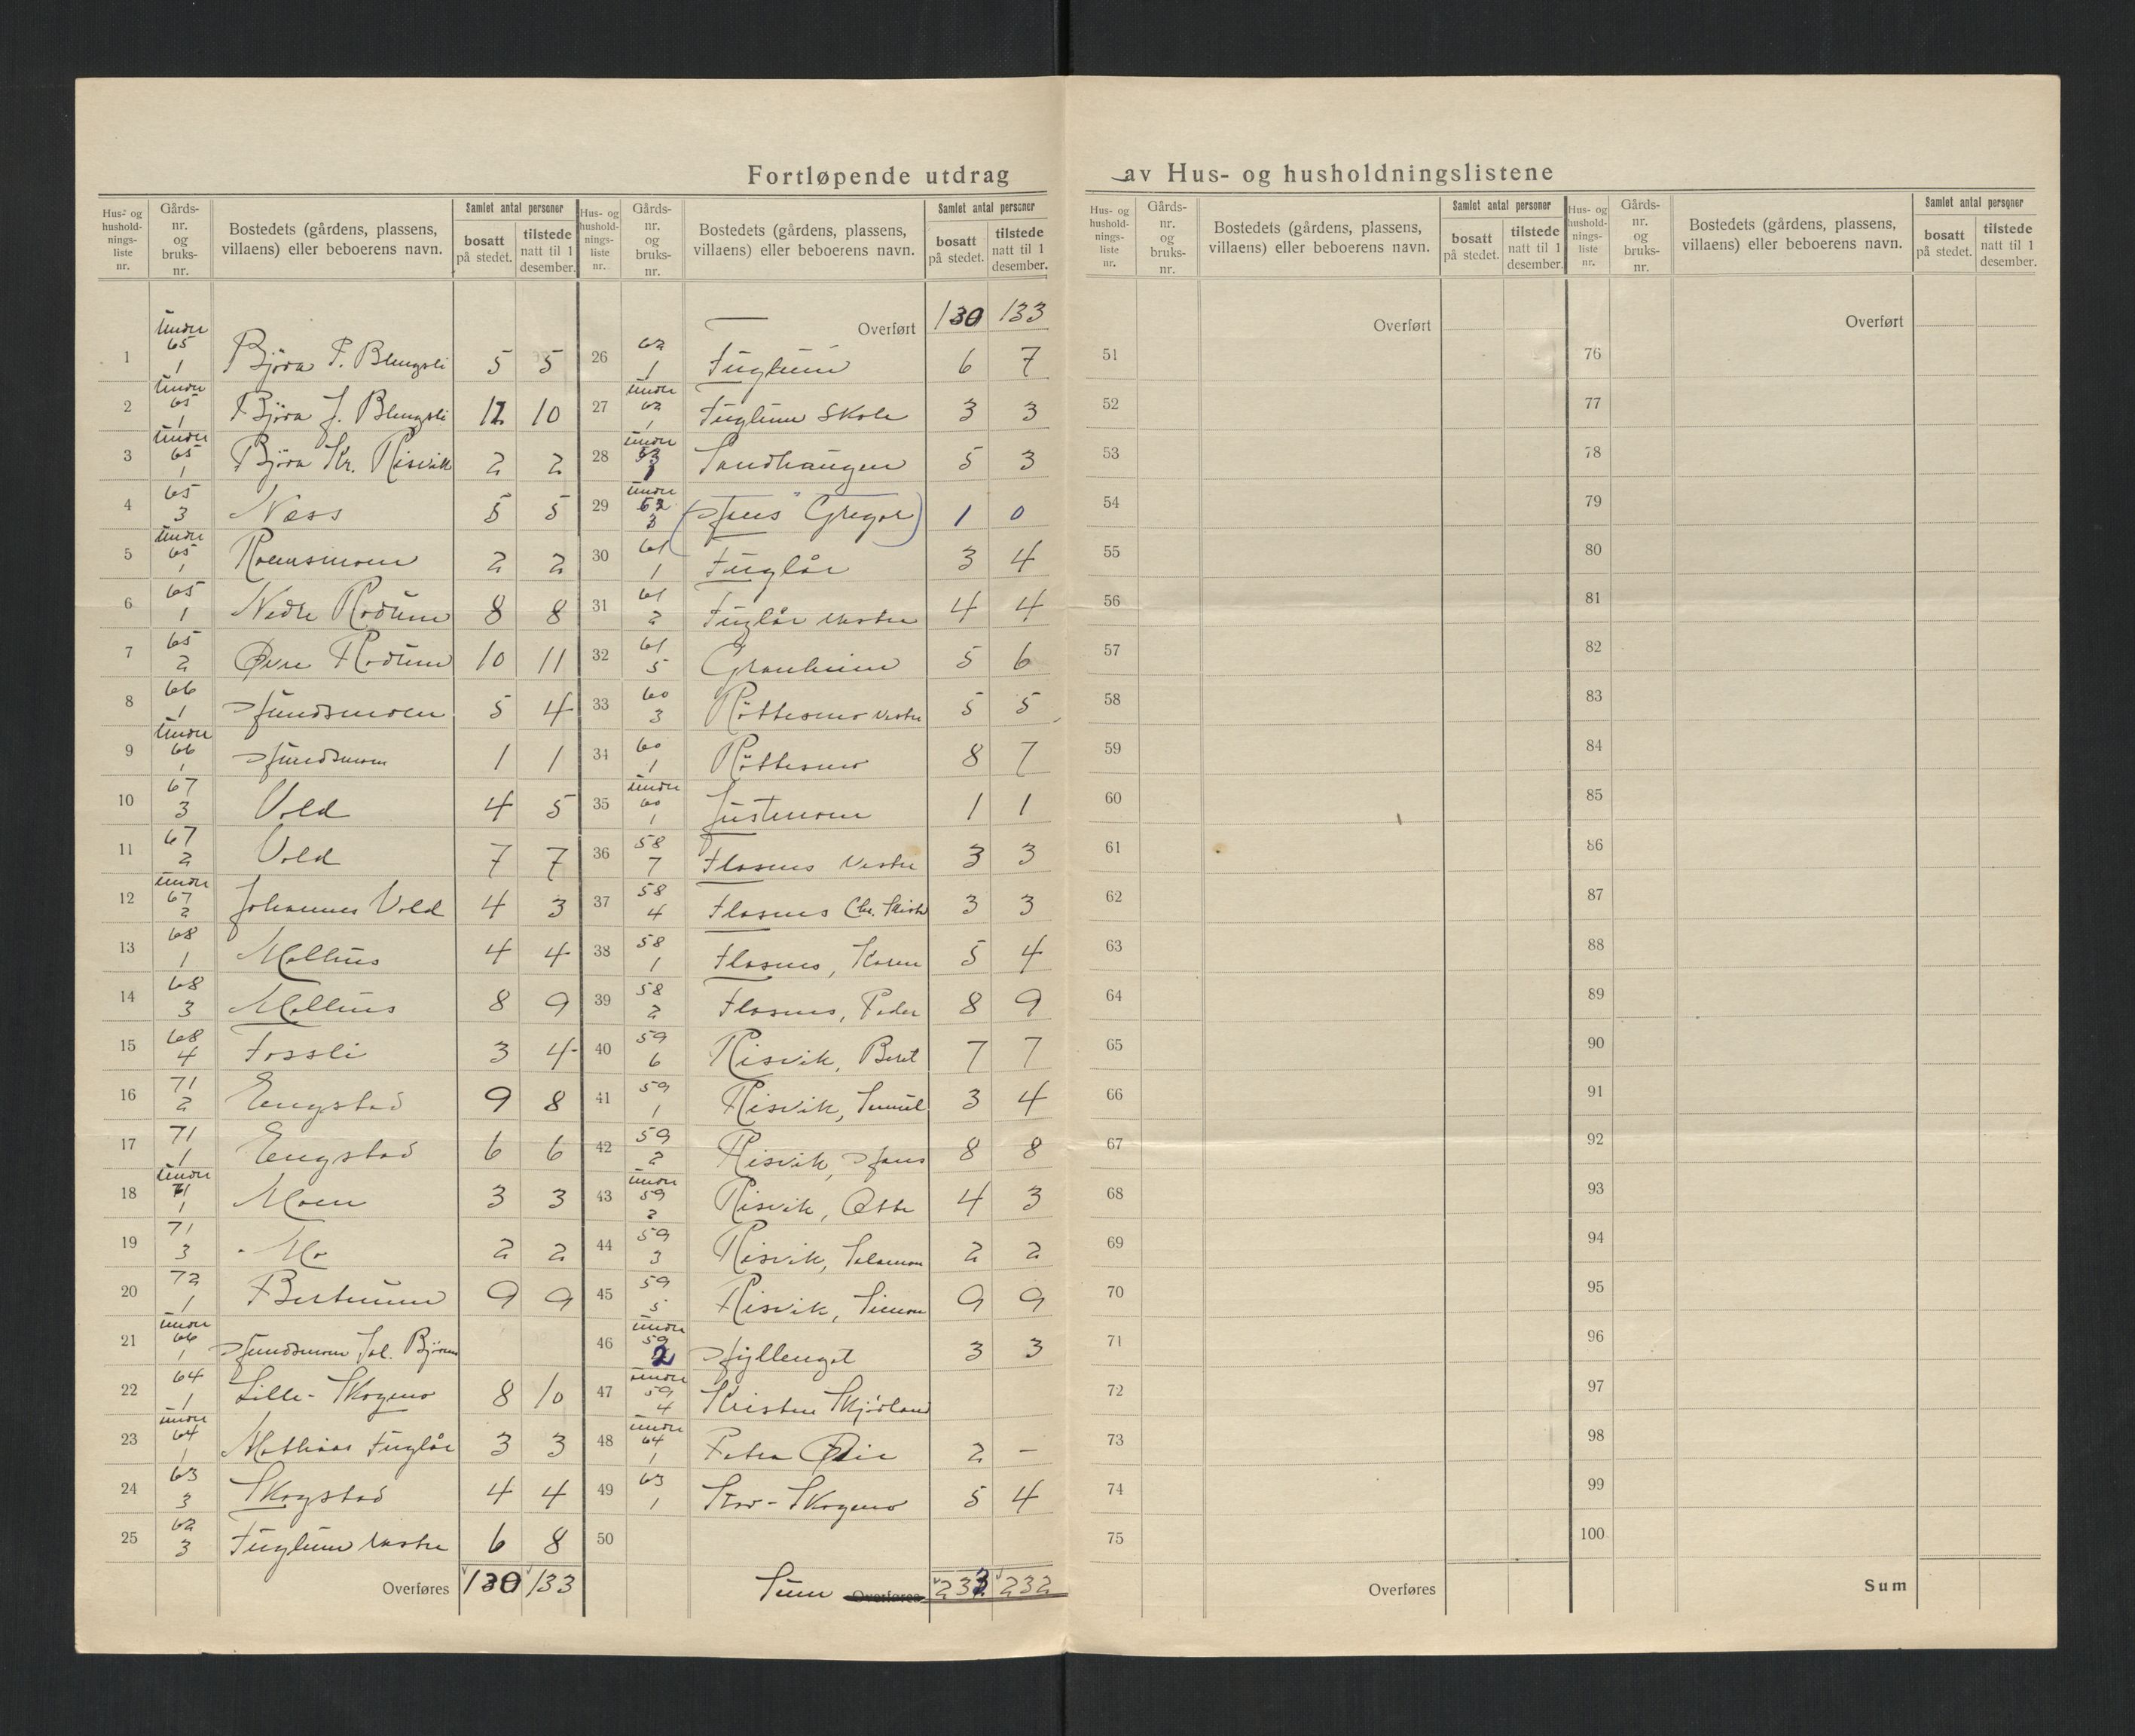 Fortløpende utdrag av Hus- og husholdningslistene
Hus- og husholdnings-liste nr. | Gårds-nr. og bruks-nr. | Bostedets (gårdens, plassens, villaens) eller beboerens navn. | Samlet antal personer | bosatt på stedet. | tilstede natt til 1 desember.
1 under 65 1 Björn P. Blengsli 5 5
2 under 65 1 Björn J. Blengsli 12 10
3 under 65 1 Björn Kr. Risvik 2 2
4 65 3 Næss 5 5
5 under 65 1 2 2
6 65 1 Nedre Rodum 8 8
7 65 2 Øvre Rodum 10 11
8 66 1 Hundsmoen 5 4
9 under 66 1 Hundsmoen 1 1
10 67 3 Vold 4 5
11 67 2 Vold 7 7
12 under 67 2 Johannes Vold 4 3
13 68 1 4 4
14 68 3 8 9
15 68 4 Fossli 3 4
16 71 2 Engstad 9 8
17 71 1 Engstad 6 6
18 under 71 1 Moen 3 3
19 71 3 Mo 2 2
20 72 1 9 9
21 under 66 1 Hundsmoen
22 64 1 Lille-Skogmo 8 10
23 under 64 1 Mathias Fuglår 3 3
24 63 3 Skogstad 4 4
25 62 3 Fuglum vestre 6 8
Overføres 130 133
Hus- og husholdnings-liste nr. | Gårds-nr. og bruks-nr. | Bostedets (gårdens, plassens, villaens) eller beboerens navn. | Samlet antal personer | bosatt på stedet. | tilstede natt til 1 desember.
Overført 130 133
26 62 1 Fuglum 6 7
27 under 62 1 Fuglum Skole 3 3
28 under Sandhaugen 5 3
29 under 62 3 (Hans Gregor) 1 0
30 61 1 Fuglår 3 4
31 61 2 Fuglår vestre 4 4
32 61 5 Granheim 5 6
33 60 3 Röttesmo vestre 5 5
34 60 1 Röttesmo 8 7
35 under 60 1 Justmoen 1 1
36 58 7 Flasnes Vestre 3 3
37 58 4 Flasnes Chr. 3 3
38 58 1 Flasnes, Karen 5 4
39 58 2 Flasnes, Peder 8 9
40 59 6 Risvik, Beret 7 7
41 59 1 Risvik, 3 4
42 59 2 Risvik, Hans 8 8
43 under 59 2 Risvik, 4 3
44 59 3 Risvik, Salamon 2 2
45 59 5 Risvik, Simon 9 9
46 under 59 2 Hyllenget 3 3
47 under 59 4 Kristen Skjörland
48 under 64 1 Petra 2 –
49 63 1 Stor-Skogmo 5 4
50
Sum Overføres 233 232
Hus- og husholdnings-liste nr. | Gårds-nr. og bruks-nr. | Bostedets (gårdens, plassens, villaens) eller beboerens navn. | Samlet antal personer | bosatt på stedet. | tilstede natt til 1 desember.
Overført
51
52
53
54
55
56
57
58
59
60
61
62
63
64
65
66
67
68
69
70
71
72
73
74
75
Overføres
Hus- og husholdnings-liste nr. | Gårds-nr. og bruks-nr. | Bostedets (gårdens, plassens, villaens) eller beboerens navn. | Samlet antal personer | bosatt på stedet. | tilstede natt til 1 desember.
Overført
76
77
78
79
80
81
82
83
84
85
86
87
88
89
90
91
92
93
94
95
96
97
98
99
100
Sum